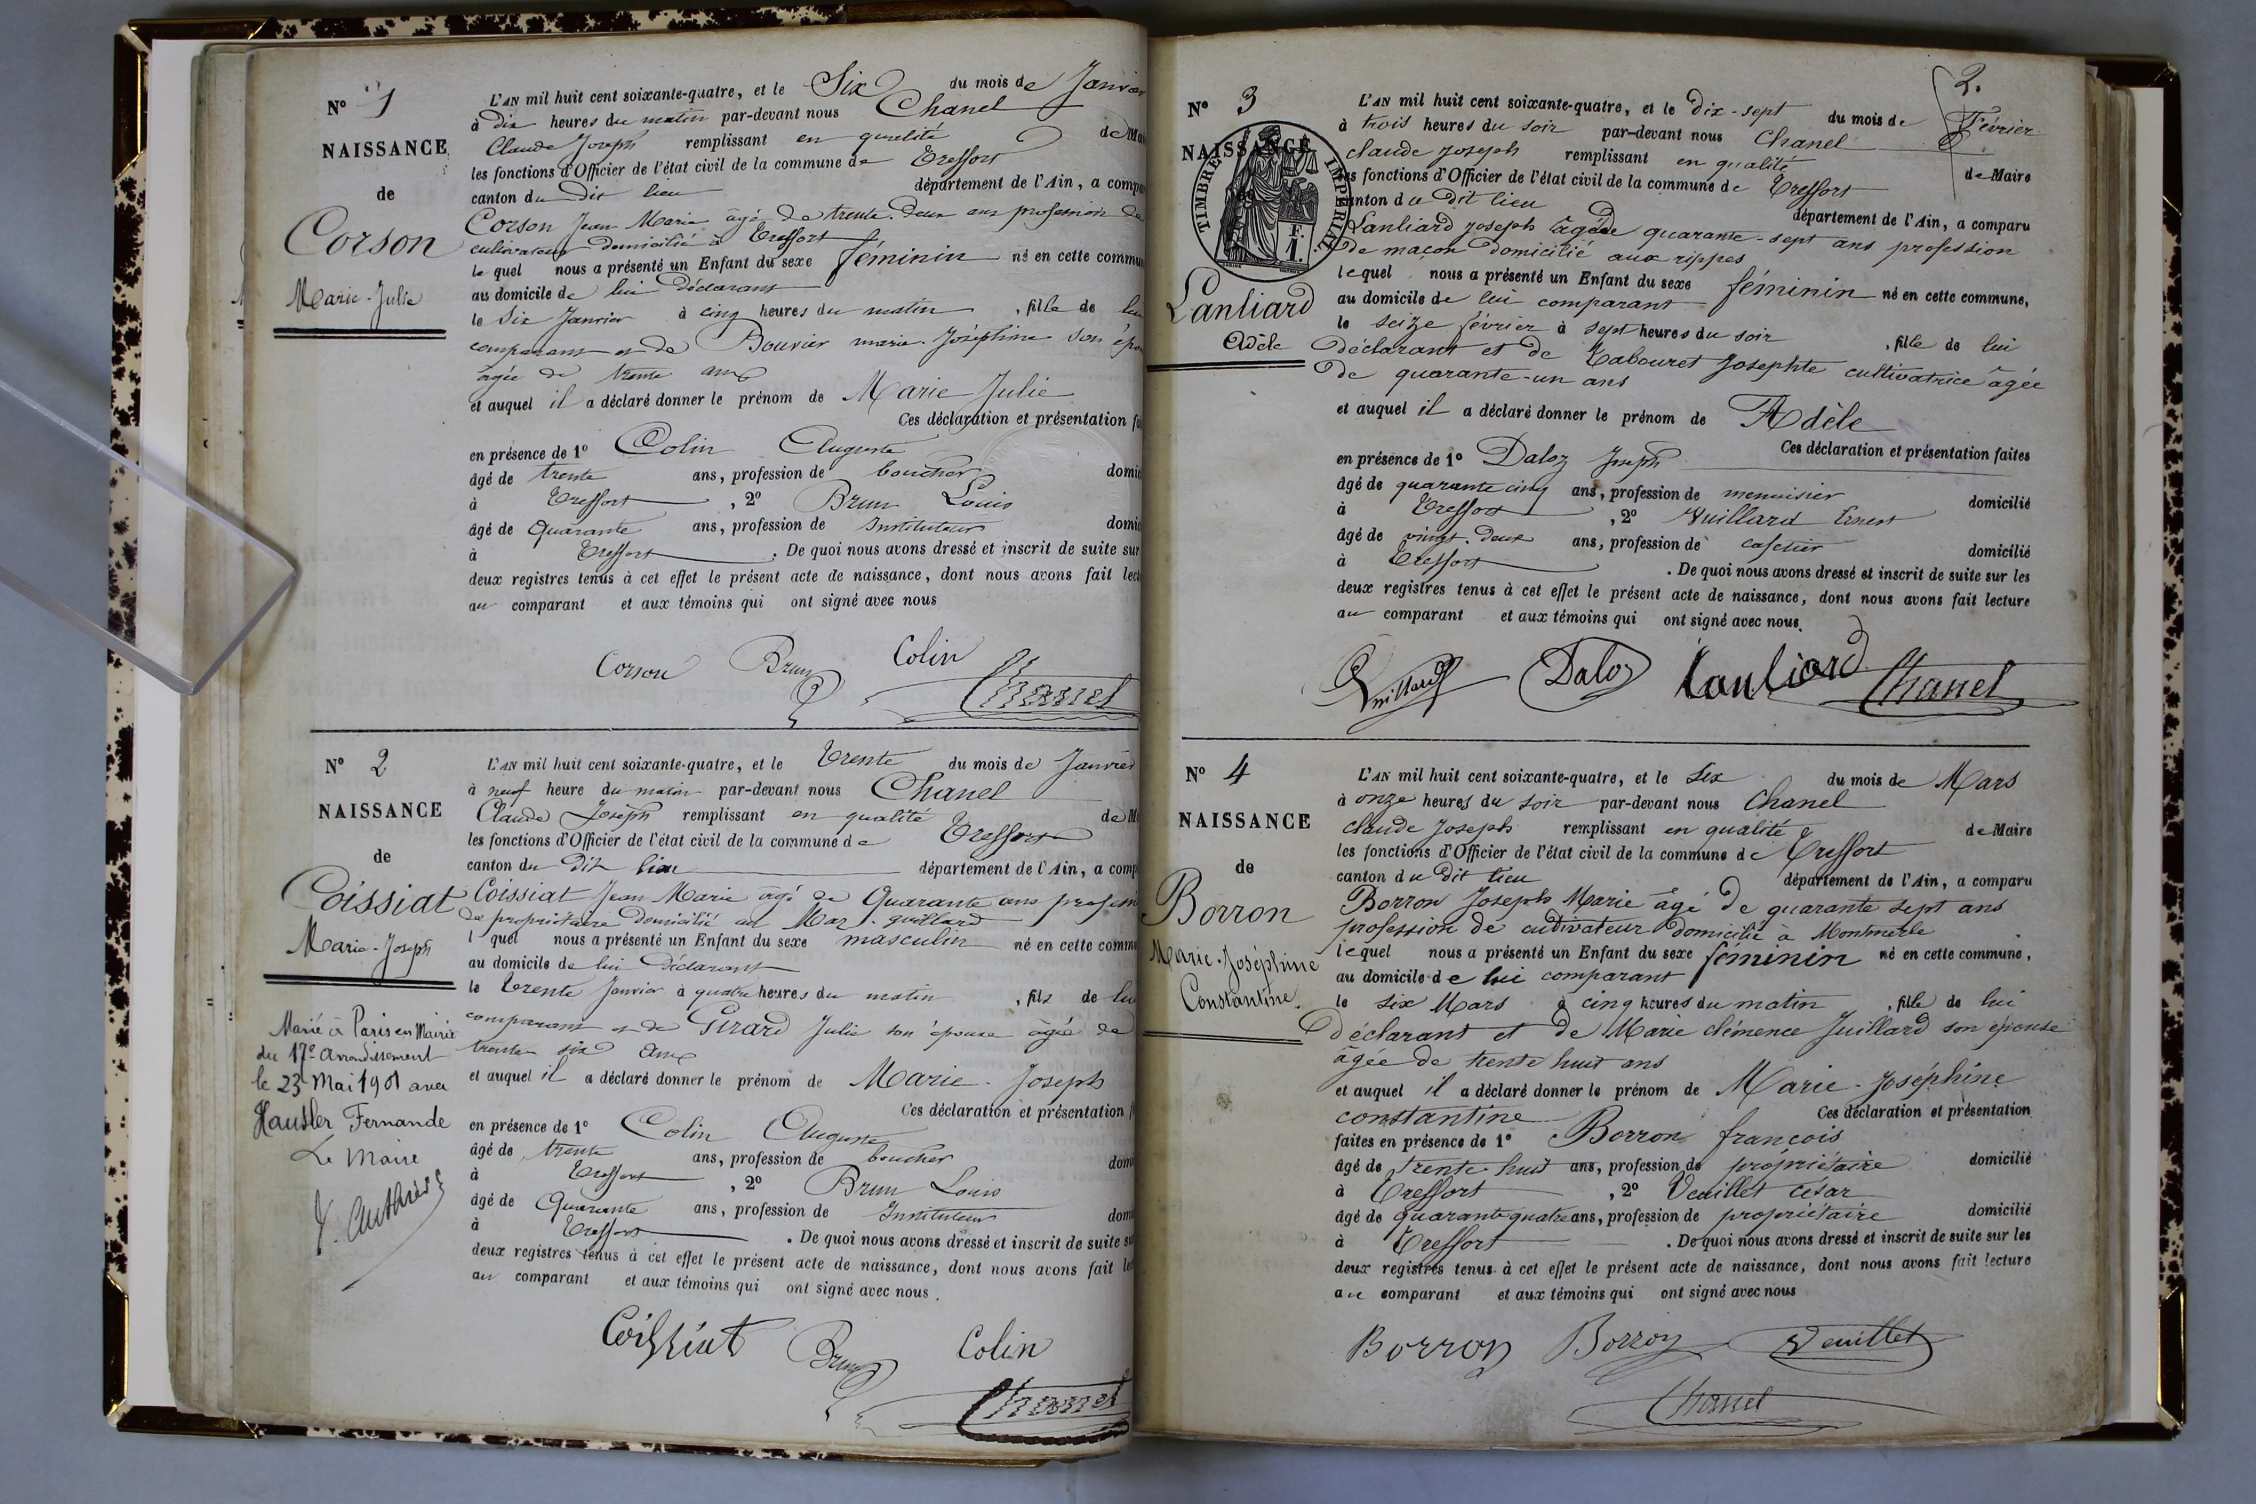 N° 1
NAISSANCE
de
Corson
Marie-Julie
L'AN mil huit cent soixante-quatre, et le Six du mois de Janvier
à dix heures du matin par-devant nous Chanel
Claude Joseph remplissant en qualité de
les fonctions d'Officier de l'état civil de la commune de Treffort
canton du dit lieu département de l'Ain, a
Corson Jean Marie âgé de trente-deux ans profession de
cultivateur domicilié à Treffort
lequel nous a présenté un Enfant du sexe féminin né en cette
au domicile de lui déclarant
le Six Janvier à cinq heures du matin, fille de lui
comparant et de Bouvier marie-Joséphine son
âgée de trente ans
et auquel il a déclaré donner le prénom de Marie Julie
Ces déclaration et présentation
en présence de 1° Colin Auguste
âgé de trente ans, profession de boucher
à Treffort, 2° Brun Louis
âgé de Quarante ans, profession de Instituteur
à Treffort. De quoi nous avons dressé et inscrit de suite sur
deux registres tenus à cet effet le présent acte de naissance, dont nous avons fait
au comparant et aux témoins qui ont signé avec nous
Corson Brun Colin
Chanel
N° 2
NAISSANCE
de
Coissiat
Marie-Joseph
Marié à Paris en Mairie
du 17e arrondissement
le 23 Mai 1901 avec
Hausler Fernande
Le Maire
L'AN mil huit cent soixante-quatre, et le Trente du mois de Janvier
à neuf heure du matin par-devant nous Chanel
Claude Joseph remplissant en qualité de
les fonctions d'Officier de l'état civil de la commune de Treffort
canton du dit lieu département de l'Ain, a
Coissiat Jean Marie âgé de Quarante ans
de propriétaire domicilié au Mas-guillard
l quel nous a présenté un Enfant du sexe masculin né en cette
au domicile de lui déclarant
le Trente Janvier à quatre heures du matin, fils de lui
comparant et de Girard Julie son épouse âgée de
trente six ans
et auquel il a déclaré donner le prénom de Marie-Joseph
Ces déclaration et présentation
en présence de 1° Colin Auguste
âgé de trente ans, profession de boucher
à Treffort, 2° Brun Louis
âgé de Quarante ans, profession de Instituteur
à Treffort. De quoi nous avons dressé et inscrit de suite
deux registres tenus à cet effet le présent acte de naissance, dont nous avons fait
au comparant et aux témoins qui ont signé avec nous.
Coissiat Brun Colin
Chanel
2.
N° 3
NAISSANCE
TIMBRE IMPERIAL
Lanliard
Adèle
L'AN mil huit cent soixante-quatre, et le dix-sept du mois de Février
à trois heures du soir par-devant nous Chanel
claude joseph remplissant en qualité de Maire
les fonctions d'Officier de l'état civil de la commune de Treffort
canton du dit lieu département de l'Ain, a comparu
Lanliard joseph âgé de quarante-sept ans profession
de maçon domicilié aux rippes
lequel nous a présenté un Enfant du sexe féminin né en cette commune,
au domicile de lui comparant
le seize février à sept heures du soir, fille de lui
déclarant et de Tabouret Josephte cultivatrice âgée
de quarante-un ans
et auquel il a déclaré donner le prénom de Adèle
Ces déclaration et présentation faites
en présence de 1° Daloz Joseph
âgé de quarante cinq ans, profession de menuisier domicilié
à Treffort, 2° Vuillard Ernest
âgé de vingt-deux ans, profession de cafetier domicilié
à Treffort. De quoi nous avons dressé et inscrit de suite sur les
deux registres tenus à cet effet le présent acte de naissance, dont nous avons fait lecture
au comparant et aux témoins qui ont signé avec nous.
Vuillard Daloz Lanliard Chanel
N° 4
NAISSANCE
de
Borron
Marie-Joséphine
Constantine.
L'AN mil huit cent soixante-quatre, et le Six du mois de Mars
à onze heures du soir par-devant nous Chanel
claude Joseph remplissant en qualité de Maire
les fonctions d'Officier de l'état civil de la commune de Treffort
canton du dit lieu département de l'Ain, a comparu
Borron Joseph Marie âgé de quarante sept ans
profession de cultivateur domicilié à Montmerle
lequel nous a présenté un Enfant du sexe féminin né en cette commune,
au domicile de lui comparant
le six Mars à cinq heures du matin, fille de lui
déclarant et de Marie clémence Juillard son épouse
âgée de trente huit ans
et auquel il a déclaré donner le prénom de Marie-Joséphine
constantine Ces déclaration et présentation
faites en présence de 1° Borron françois
âgé de trente-huit ans, profession de propriétaire domicilié
à Treffort, 2° Veuillet césar
âgé de quarante quatre ans, profession de propriétaire domicilié
à Treffort. De quoi nous avons dressé et inscrit de suite sur les
deux registres tenus à cet effet le présent acte de naissance, dont nous avons fait lecture
au comparant et aux témoins qui ont signé avec nous
Borron Borron Veuillet
Chanel